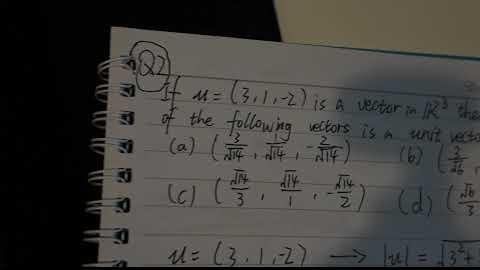 Q2
If u = (3, 1, -2) is a vector in ℝ³
of the following vectors is a unit
(a) (3/√14, 1/√14, -2/√14) (b)
(c) (√14/3, √14/1, -√14/2) (d) (√6/3
u = (3, 1, -2) ⟶ |u| = √3² +